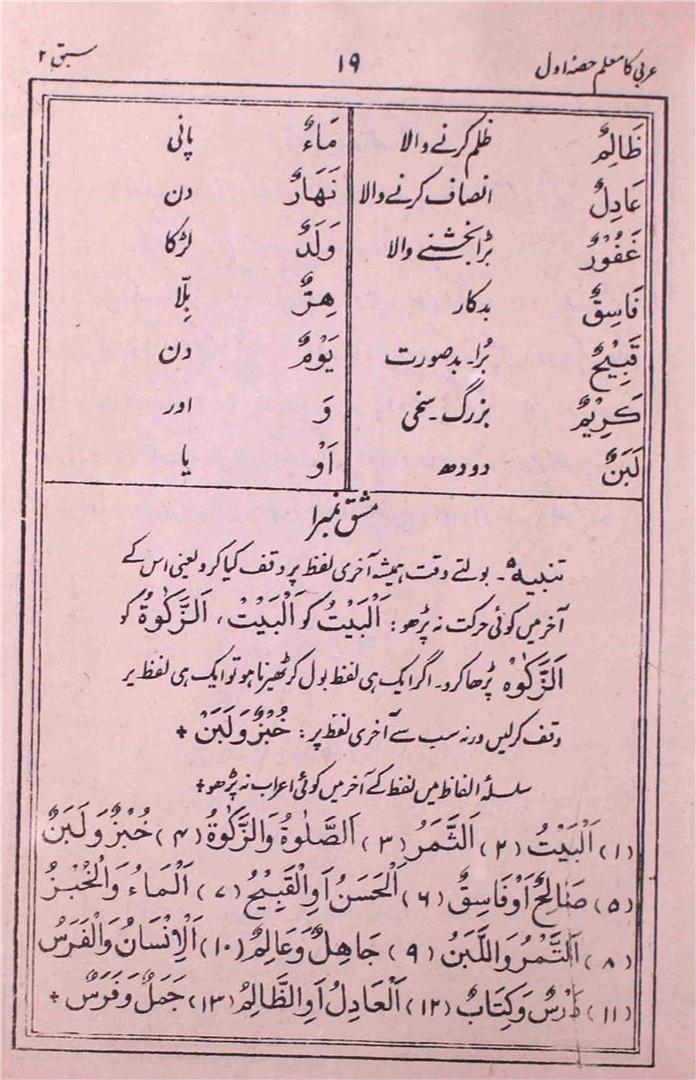 عربی کا معلم حصہ اول ۱۹ سبق ۲
ظَالِمٌ ظلم کرنے والا مَاءٌ پانی
عَادِلٌ انصاف کرنے والا نَهَارٌ دن
غَفُوْرٌ بڑا بخشنے والا وَلَدٌ لڑکا
فَاسِقٌ بدکار هِرٌّ بِلّا
قَبِيْحٌ بُرا۔ بدصورت يَوْمٌ دن
كَرِيْمٌ بزرگ۔ سخی وَ اور
لَبَنٌ دودھ اَوْ یا
مشق نمبر ۱
تنبیہ ۵۔ بولتے وقت ہمیشہ آخری لفظ پر وقف کیا کرو یعنی اس کے
آخر میں کوئی حرکت نہ پڑھو: اَلْبَيْتُ کو اَلْبَيْتْ، اَلزَّكٰوةُ کو
اَلزَّكٰوهْ پڑھا کرو۔ اگر ایک ہی لفظ بول کر ٹھیرنا ہو تو ایک ہی لفظ پر
وقف کرلیں ورنہ سب سے آخری لفظ پر: خُبْزٌ وَلَبَنْ +
سلسلۂ الفاظ میں لفظ کے آخر میں کوئی اعراب نہ پڑھو +
(۱) اَلْبَيْتُ (۲) اَلثَّمَرُ (۳) اَلصَّلٰوةُ وَالزَّكٰوةُ (۴) خُبْزٌ وَلَبَنٌ
(۵) صَالِحٌ اَوْ فَاسِقٌ (۶) اَلْحَسَنُ اَوِ الْقَبِيْحُ (۷) اَلْمَاءُ وَالْخُبْزُ
(۸) اَلتَّمْرُ وَاللَّبَنُ (۹) جَاهِلٌ وَعَالِمٌ (۱۰) اَلْاِنْسَانُ وَالْفَرَسُ
(۱۱) دَرْسٌ وَكِتَابٌ (۱۲) اَلْعَادِلُ اَوِ الظَّالِمُ (۱۳) جَمَلٌ وَفَرَسٌ +